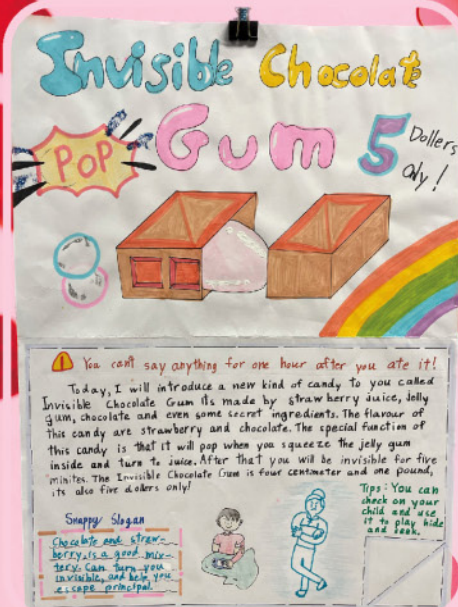 Invisible Chocolate
Gum 5 Dollers
only!
POP
You can't say anything for one hour after you ate it!
Today, I will introduce a new kind of candy to you called
Invisible Chocolate Gum Its made by straw berry juice, Jelly
gum, chocolate and even some secret ingredients. The flavour of
this candy are strawberry and chocolate. The special function of
this candy is that it will pop when you squeeze the jelly gum
inside and turn to juice. After that you will be invisible for five
minites. The Invisible Chocolate Gum is four centimeter and one pound,
its also five dollers only!
Snappy Slogan
Chocolate and straw-
berry, is a good mix-
tery. Can turn you
invisible, and help you
escape principal.
Tips: You can
check on your
child and use
it to play hide
and seek.